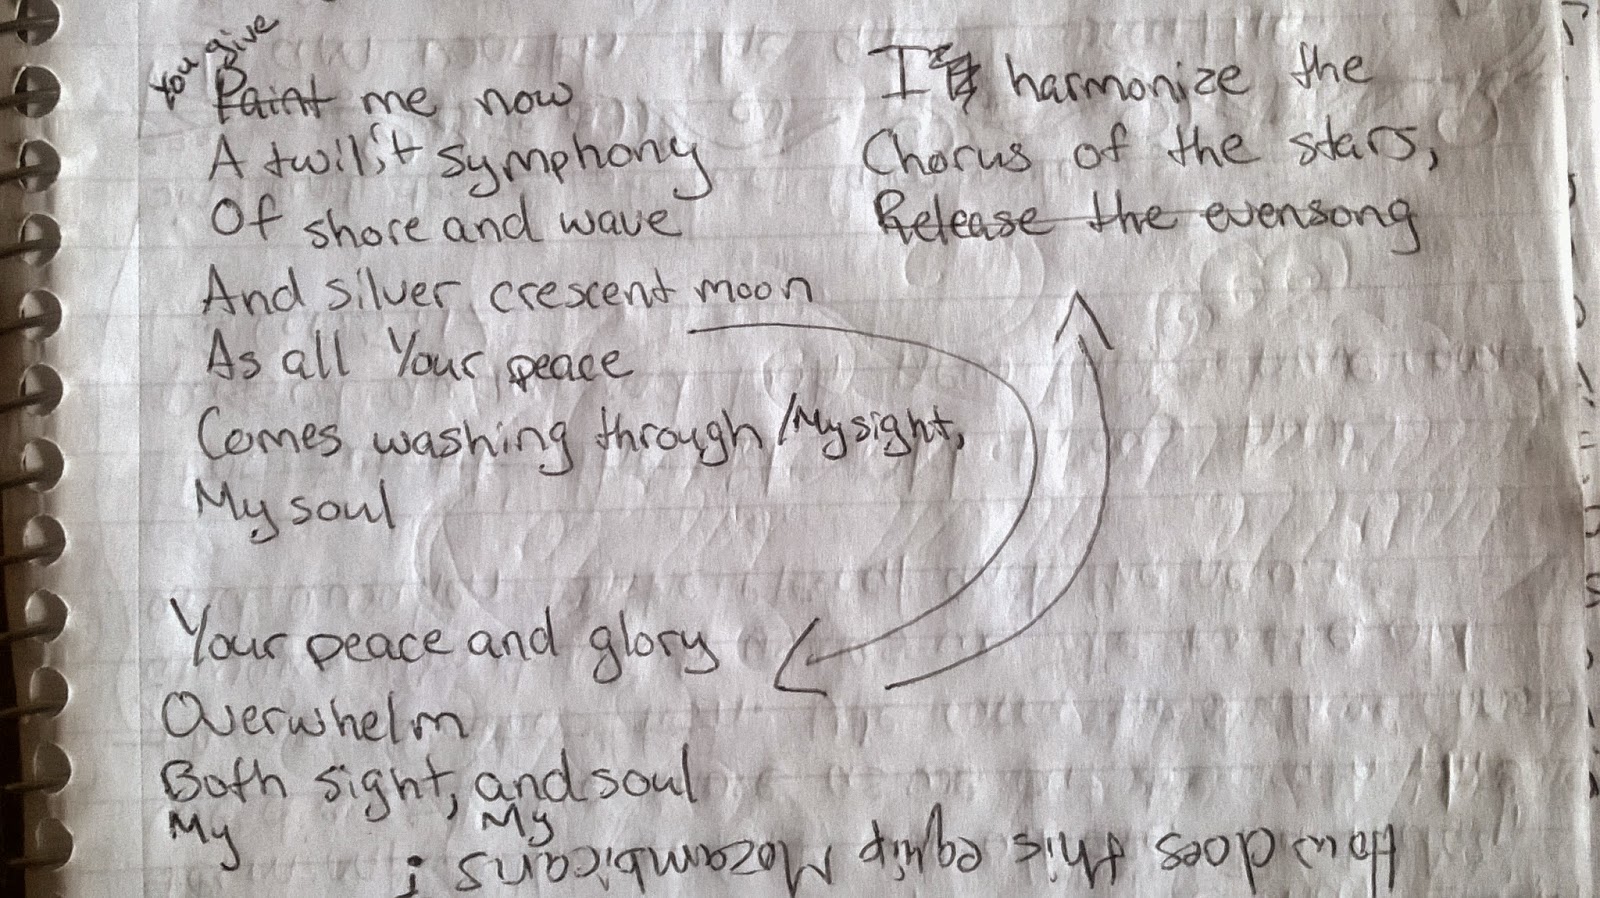 You give
Paint me now
A twilit symphony
Of shore and wave
And silver crescent moon
As all Your peace
Comes washing through / My sight,
My soul
Your peace and glory
Overwhelm
Both sight, and soul
My My
I harmonize the
Chorus of the stars,
Release the evensong
How does this equip Mozambicans;